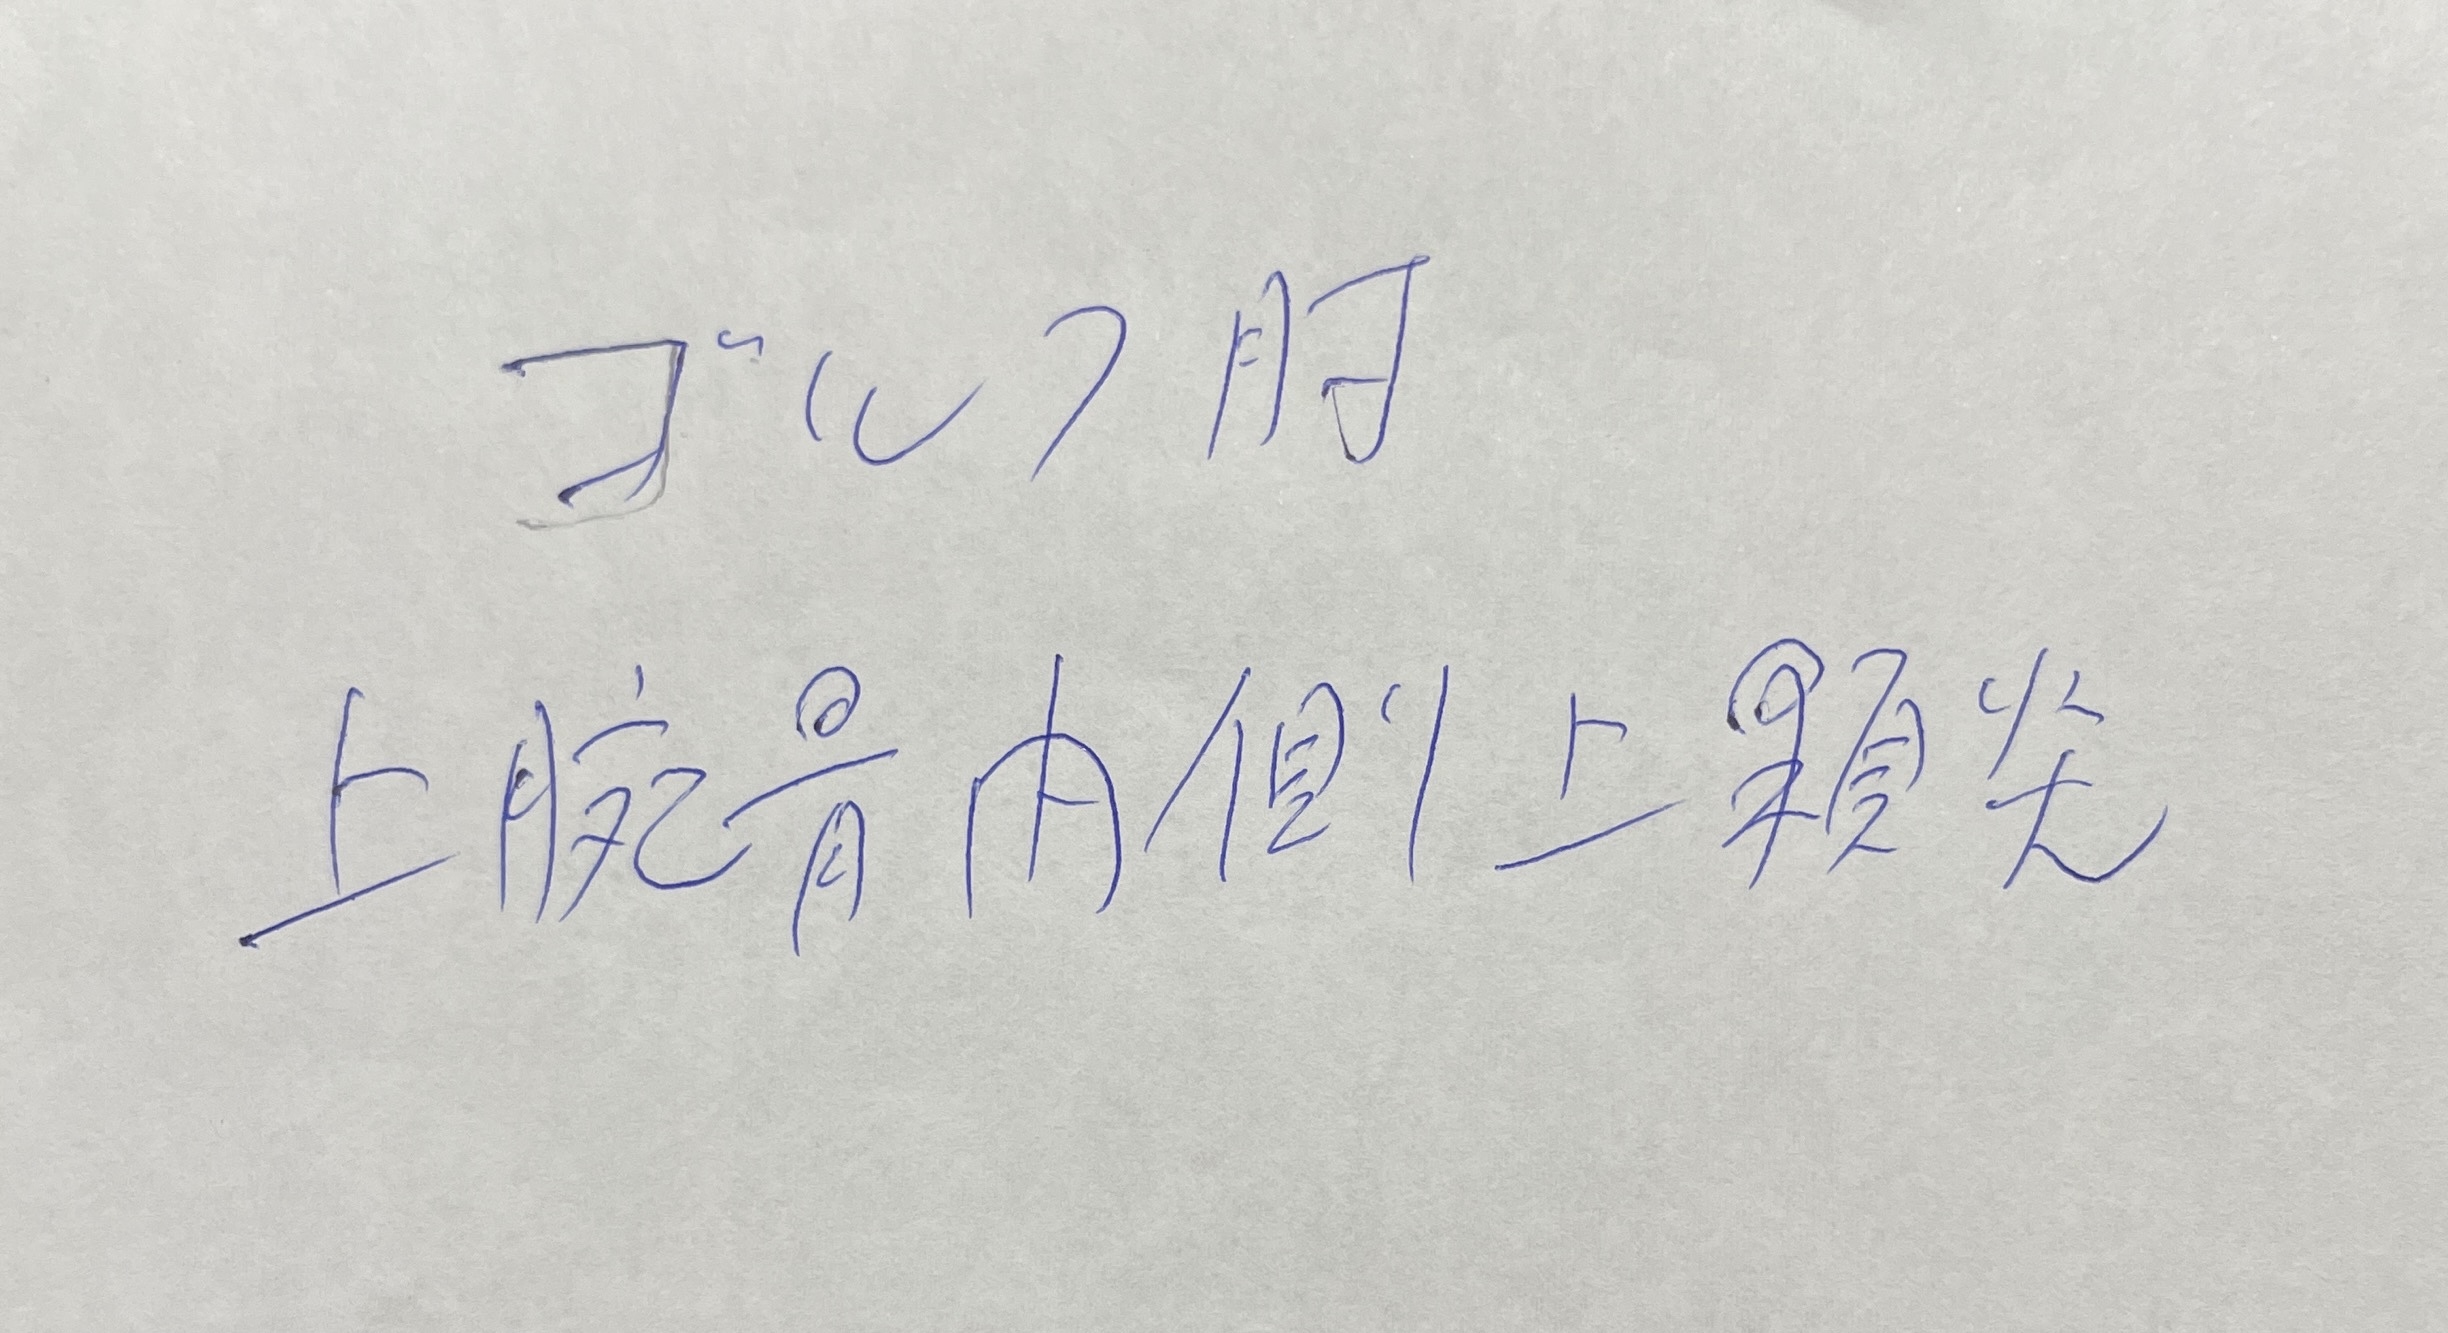 ゴルフ肘
上腕骨内側上顆炎